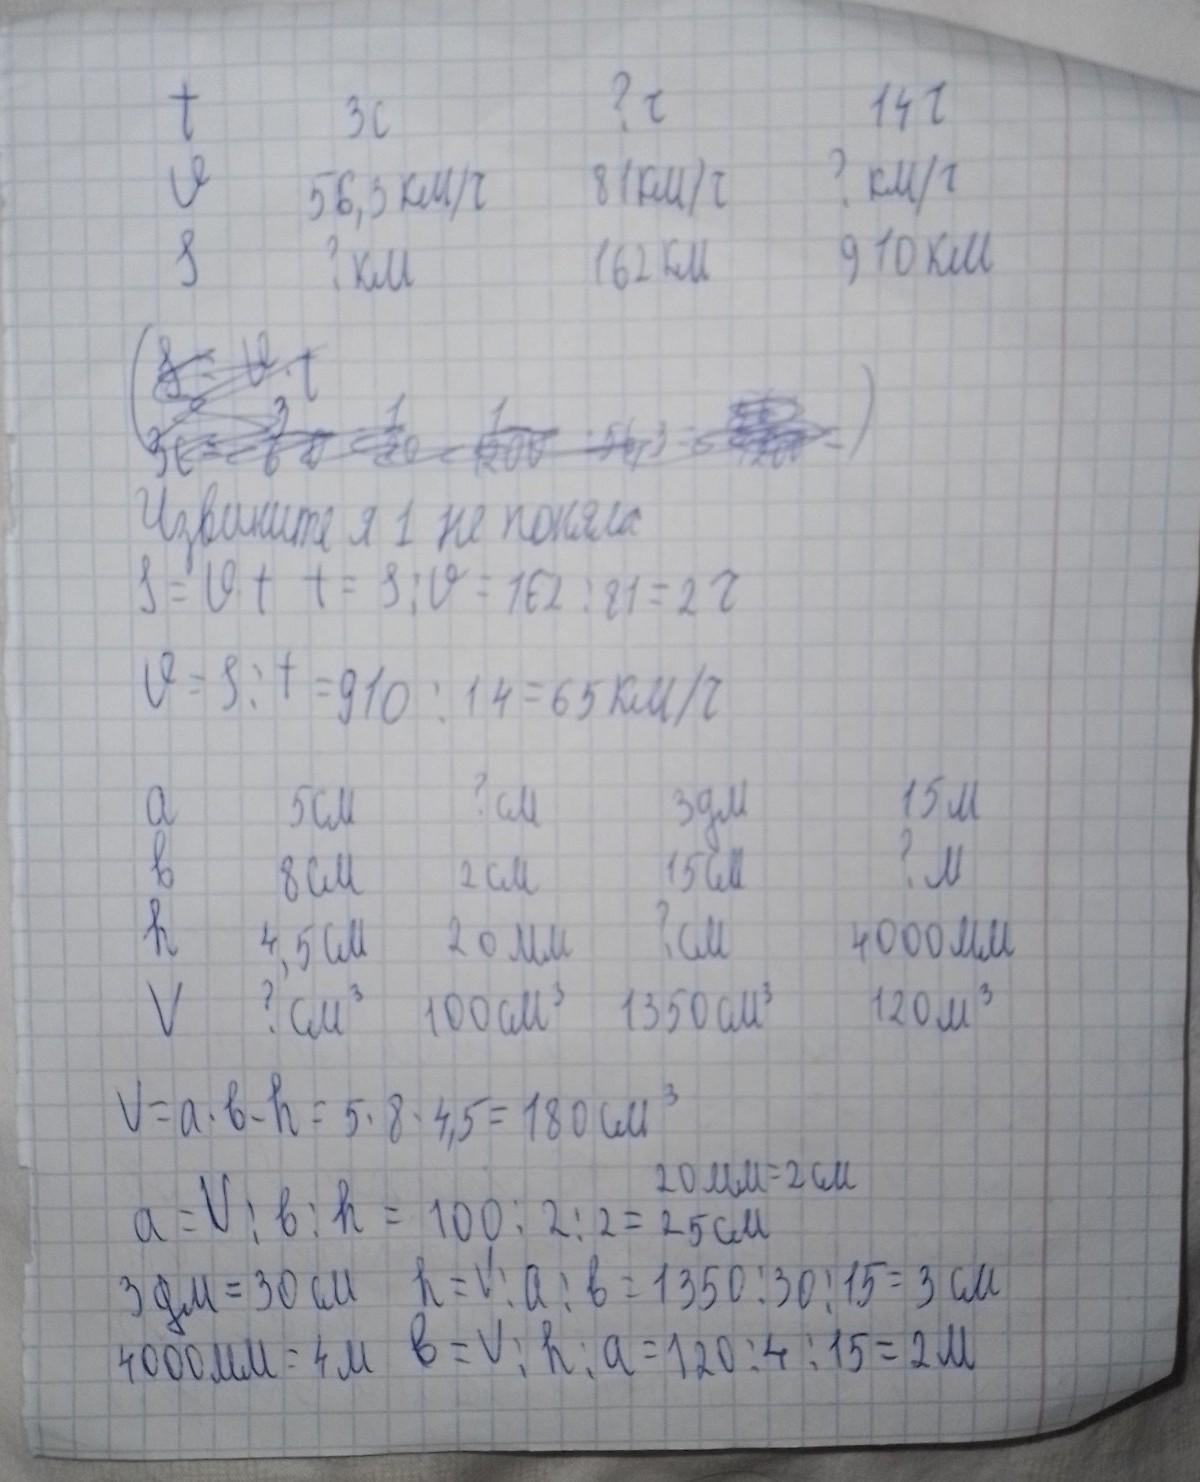 t 3с ?ч 14ч
v 56,3км/ч 81км/ч ?км/ч
S ?км 162км 910км
S = v · t
Извините я 1 не поняла
S = v · t t = S : v = 162 : 81 = 2 ч
v = S : t = 910 : 14 = 65 км/ч
a 5см ?см 3дм 15м
b 8см 2см 15см ?м
h 4,5см 20мм ?см 4000мм
V ?см³ 100см³ 1350см³ 120м³
V = a · b · h = 5 · 8 · 4,5 = 180 см³
20мм = 2см
a = V : b : h = 100 : 2 : 2 = 25см
3дм = 30см h = V : a : b = 1350 : 30 : 15 = 3 см
4000мм = 4м b = V : h : a = 120 : 4 : 15 = 2м